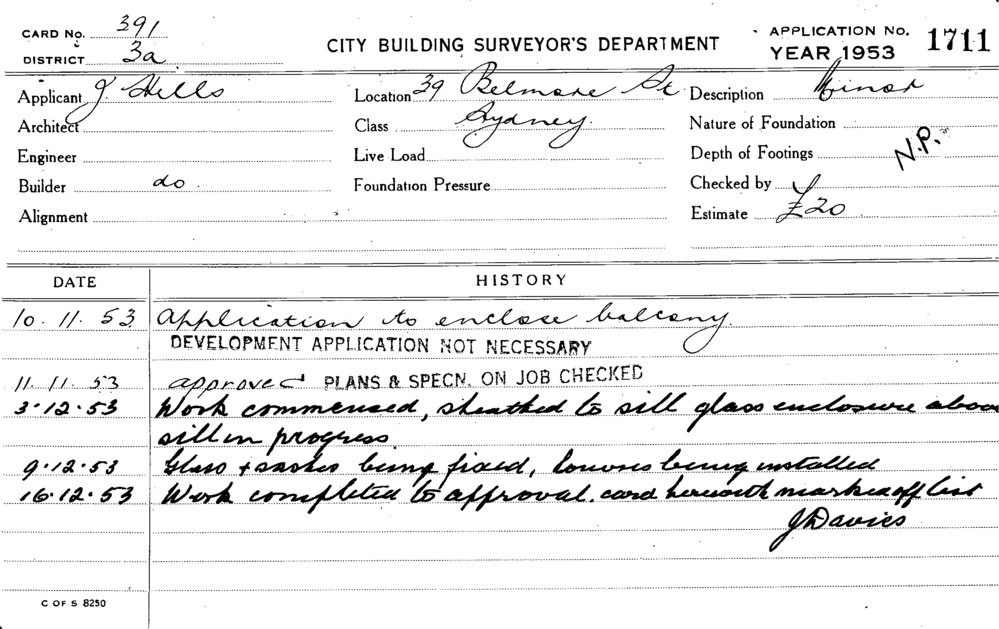 CARD No. 391
DISTRICT 3a
CITY BUILDING SURVEYOR'S DEPARTMENT
APPLICATION No. 1711
YEAR 1953
Applicant J. Hills
Location 39 Belmore St
Description Minor
Architect
Class Sydney.
Nature of Foundation
Engineer
Live Load
Depth of Footings
N.P.
Builder do.
Foundation Pressure
Checked by
Alignment
Estimate £20
DATE HISTORY
10.11.53 Application to enclose balcony.
DEVELOPMENT APPLICATION NOT NECESSARY
11.11.53 approved PLANS & SPECN. ON JOB CHECKED
3.12.53 Work commenced, sheathed to sill glass enclosure above
sill in progress.
9.12.53 Glass + sashes being fixed, louvres being installed
16.12.53 Work completed to approval. card herewith marked off list
J Davies
C OF S 8250